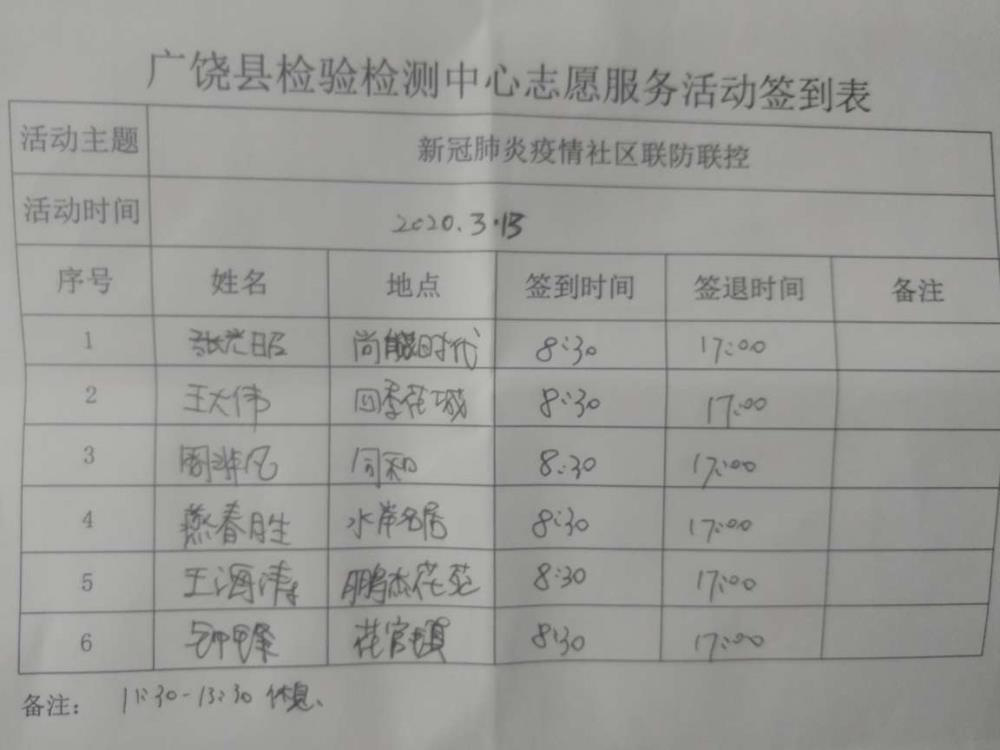 广饶县检验检测中心志愿服务活动签到表
活动主题 新冠肺炎疫情社区联防联控
活动时间 2020.3.13
序号 姓名 地点 签到时间 签退时间 备注
1 尚 时代 8:30 17:00
2 王大伟 四季花城 8:30 17:00
3 周 凡 同和 8:30 17:00
4 燕春生 水岸名居 8:30 17:00
5 王海涛 鹏杰花苑 8:30 17:00
6 花官镇 8:30 17:00
备注: 11:30-13:30 休息、